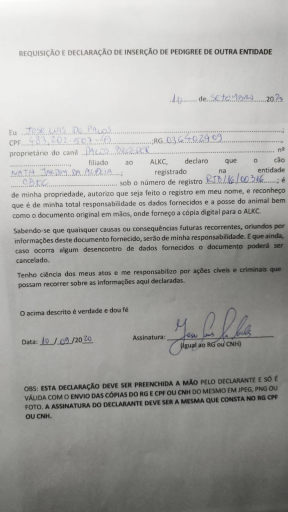 REQUISIÇÃO E DECLARAÇÃO DE INSERÇÃO DE PEDIGREE DE OUTRA ENTIDADE
10 de Setembro 2020
Eu José Luis de Paulo
CPF RG
proprietário do canil nº
filiado ao ALKC, declaro que o cão
registrado na entidade
CBKC sob o número de registro é
de minha propriedade, autorizo que seja feito o registro em meu nome, e reconheço
que é de minha total responsabilidade os dados fornecidos e a posse do animal bem
como o documento original em mãos, onde forneço a cópia digital para o ALKC.
Sabendo-se que quaisquer causas ou consequências futuras recorrentes, oriundos por
informações deste documento fornecido, serão de minha responsabilidade. E que ainda,
caso ocorra algum desencontro de dados fornecidos o documento poderá ser
cancelado.
Tenho ciência dos meus atos e me responsabilizo por ações cíveis e criminais que
possam recorrer sobre as informações aqui declaradas.
O acima descrito é verdade e dou fé
Data: 10/09/2020 Assinatura:
(Igual ao RG ou CNH)
OBS: ESTA DECLARAÇÃO DEVE SER PREENCHIDA A MÃO PELO DECLARANTE E SÓ É
VÁLIDA COM O ENVIO DAS CÓPIAS DO RG E CPF OU CNH DO MESMO EM JPEG, PNG OU
FOTO. A ASSINATURA DO DECLARANTE DEVE SER A MESMA QUE CONSTA NO RG CPF
OU CNH.